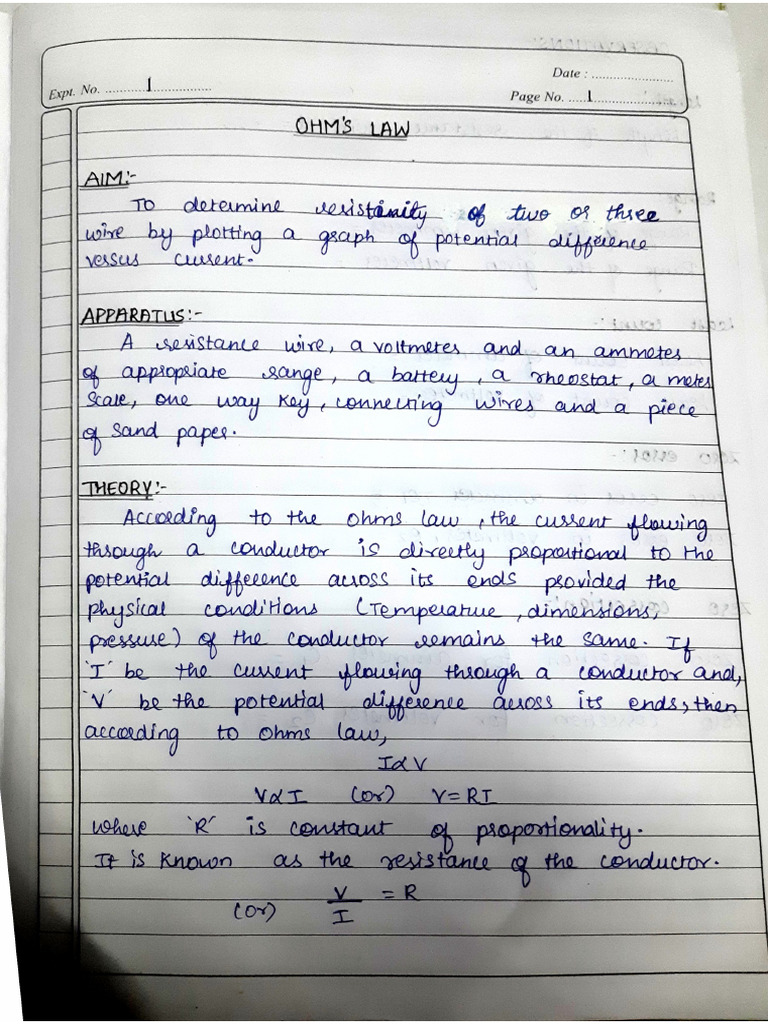 Date : ........................
Expt. No. ............1..................
Page No. .....1.....................
OHM'S LAW
AIM:-
To determine resistivity of two or three
wire by plotting a graph of potential difference
versus current.
APPARATUS:-
A resistance wire, a voltmeter and an ammeter
of appropriate range, a battery, a rheostat, a meter
scale, one way key, connecting wires and a piece
of sand paper.
THEORY:-
According to the ohms law, the current flowing
through a conductor is directly proportional to the
potential difference across its ends provided the
physical conditions (Temperature, dimensions,
pressure) of the conductor remains the same. If
'I' be the current flowing through a conductor and,
'V' be the potential difference across its ends, then
according to ohms law,
I∝V
V∝I (or) V=RI
where 'R' is constant of proportionality.
It is known as the resistance of the conductor.
(or) V/I = R